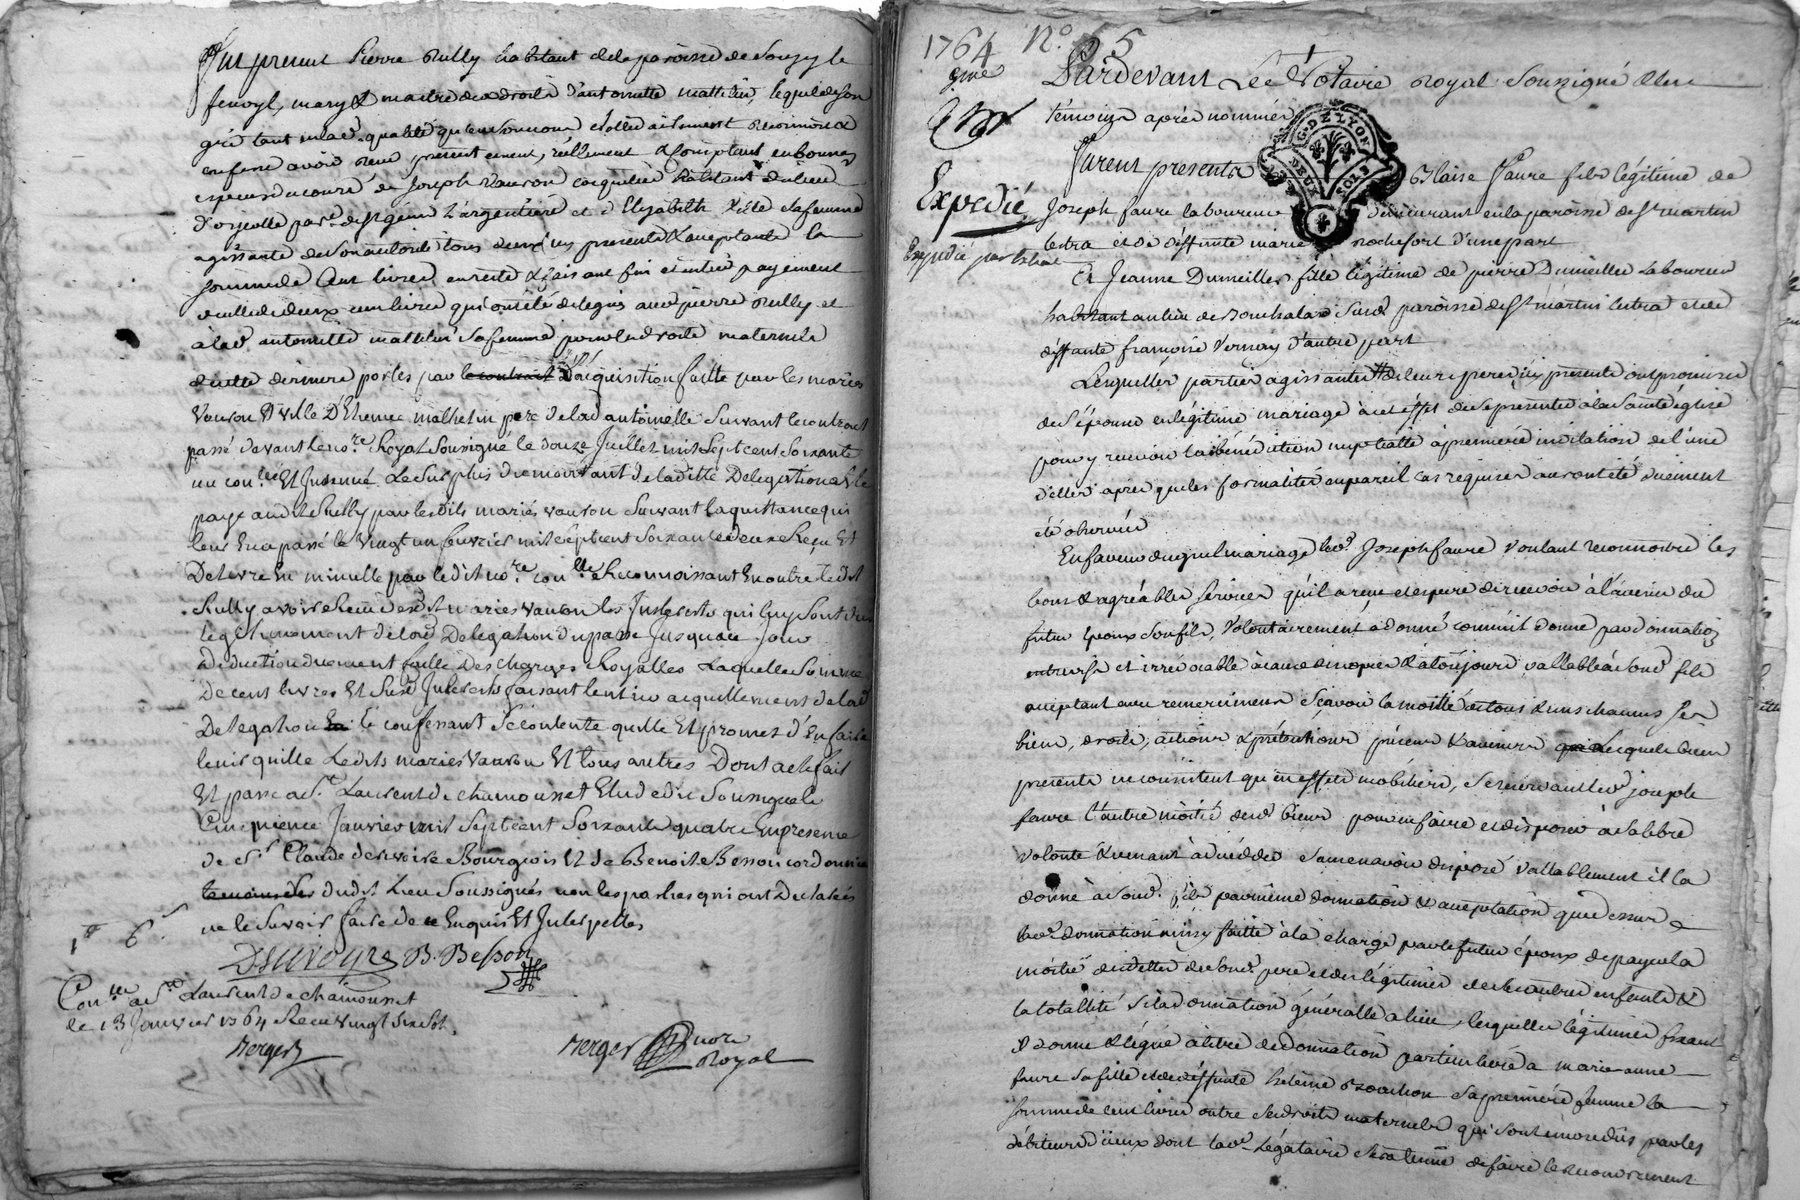 fut present Pierre Rully habitant de la paroisse de Souzy le
fenoyl, mary & maitre des droits d'antoinette mathelin, lequel de son
gré tant en lad. qualité qu'en son nom a
confessé avoir reçu presentement, réellement & comptant en bonnes
especes du cours de Joseph Vauron habitant du lieu
d' par.e de St génis L'argentiere et d'Elizabeth sa femme
agissante de son autorité tous deux icy presents & acceptants la
somme de Cent livres en reste & faisant fin et entier payement
de celle de deux cent livres qui ont été délégués aud. pierre Rully et
à lad. antoinette mathelin sa femme pour les droits maternels
de cette derniere portés par le contrat d'acquisition faitte par les mariés
Vauron & ville D'Etienne mathelin pere de lad antoinette Suivant le contract
passé devant le no.re Royal Soussigné le douze Juillet mil Sept cent Soixante
un con.lé Et Insinué Le Surplus du montant de laditte Delegation a été
payé audit Rully par lesdits mariés vauron Suivant la quittance qui
leur En a passé le vingt un fevrier mil Sept cent Soixante deux Reçu Et
De levre En minutte par le dit no.re con.llé Reconnoissant En outre le dit
Rully avoir Reçu desd.ts mariés vauron les Interests qui luy sont dus
légitimement de lad. Delegation du passé Jusqua ce Jour
Deduction duement faitte des charges Royalles Laquelle Somme
de cent livres Et Susd. Interests faisant l'entier acquittement de lad
Delegation le confessant S'en contente quitte Et promet d'En faire
tenir quitte Lesdits mariés Vauron Et tous autres Dont acte fait
Et passé a St. Laurent de chamousset Etude du Soussigné le
Cinquieme Janvier mil Sept cent Soixante quatre En presence
de s.r Claude desuoire Bourgeois Et de Benoit Besson cordonnier
dudit Lieu Soussignés non les parties qui ont Declarés
ne le Savoir faire de ce Enquis Et Interpellés
Dsuvoyre B. Besson
Con.llé a St. Laurent de chamousset
le 13 Janvier 1764 Reçu vingt Six Sol.
Berger
Berger nore
Royal
1764 N.o 5
Expedié
Expedié par Extrait
Pardevant Le Notaire Royal Soussigné & les
témoins après nommés
G. DE LYON
DEUX SOLS
furent presents Blaise faure fils légitime de
Joseph faure laboureur demeurant en la paroisse de St martin
lestra et de deffunte marie rochefort d'une part
Et Jeanne Dumillier fille légitime de pierre Dumillier laboureur
habitant au lieu de Susd. paroisse de St martin lestra et de
deffunte françoise Vernay d'autre part
Lesquelles parties agissantes de leurs peres icy presents ont promis
de S'épouser en légitime mariage à cet effet de se presenter à la Sainte église
pour y recevoir la bénédiction nuptialle à premiere invitation de l'une
d'elles après que les formalités en pareil cas requises auront été duement
été observées
En faveur duquel mariage led. Joseph faure voulant reconnoitre les
bons & agréables services qu'il a reçu et espere de recevoir à l'avenir du
futur époux Son fils, volontairement a donné comme il donne par donnation
entrevifs et irrévocable à cause de noces & à toujours vallable à Sond. fils
acceptant avec remerciment Sçavoir la moitié de tous & uns chacuns Ses
biens, droits, actions & prétentions présens & avenirs lesquels biens
presents ne consistent qu'en effets mobiliers, Se réservant led. joseph
faure l'autre moitié desd. biens pour en faire et disposer à Sa libre
volonté & venant à décéder Sans en avoir disposé vallablement il la
donne à Sond. fils par même donnation & acceptation que dessus
lad. donnation ainsy faitte à la charge par le futur époux de payer la
moitié des dettes de Sond. pere et des légitimes de Ses autres enfants &
la totalité Si la donnation générale a lieu, lesquelles légitimes fixant
il donne & légue à titre de donnation particuliere a marie anne
faure Sa fille et de deffunte helene Sa premiere femme la
Somme de cent livres outre Ses droits maternels qui Sont encore dus par les
débiteurs d'iceux dont lad. Légataire Sera tenue de faire le recouvrement